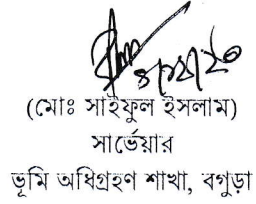 (মোঃ সাইফুল ইসলাম)
সার্ভেয়ার
ভূমি অধিগ্রহণ শাখা, বগুড়া